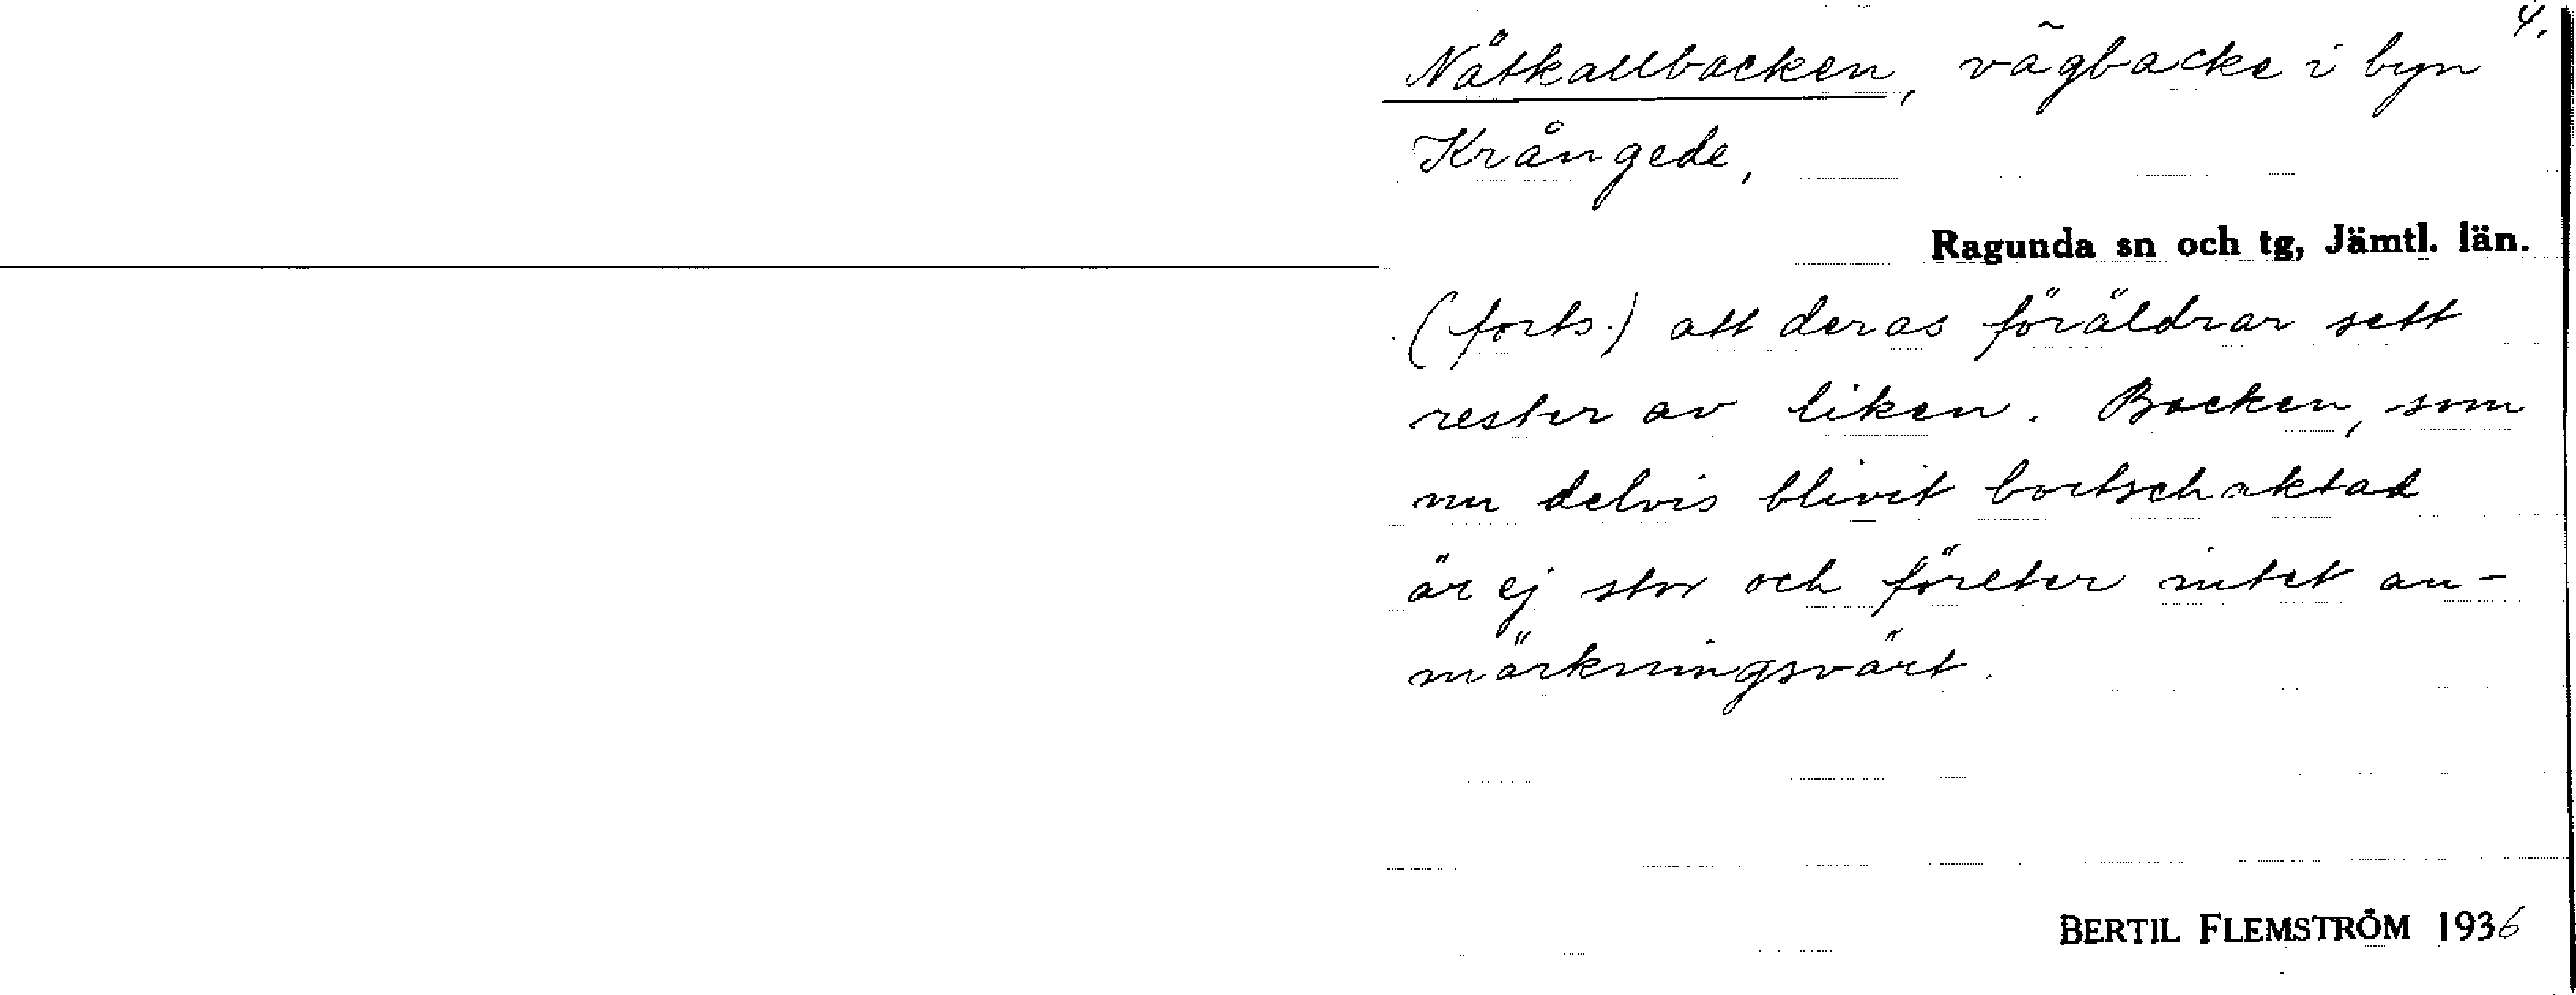 4.
Nåtkallbacken, vägbacke i byn
Krångede,
Ragunda sn och tg, Jämtl. län.
(forts.) att deras föräldrar sett
rester av liken. Backen, som
nu delvis blivit bortschaktad
är ej stor och företer intet an-
märkningsvärt.
BERTIL FLEMSTRÖM 1936